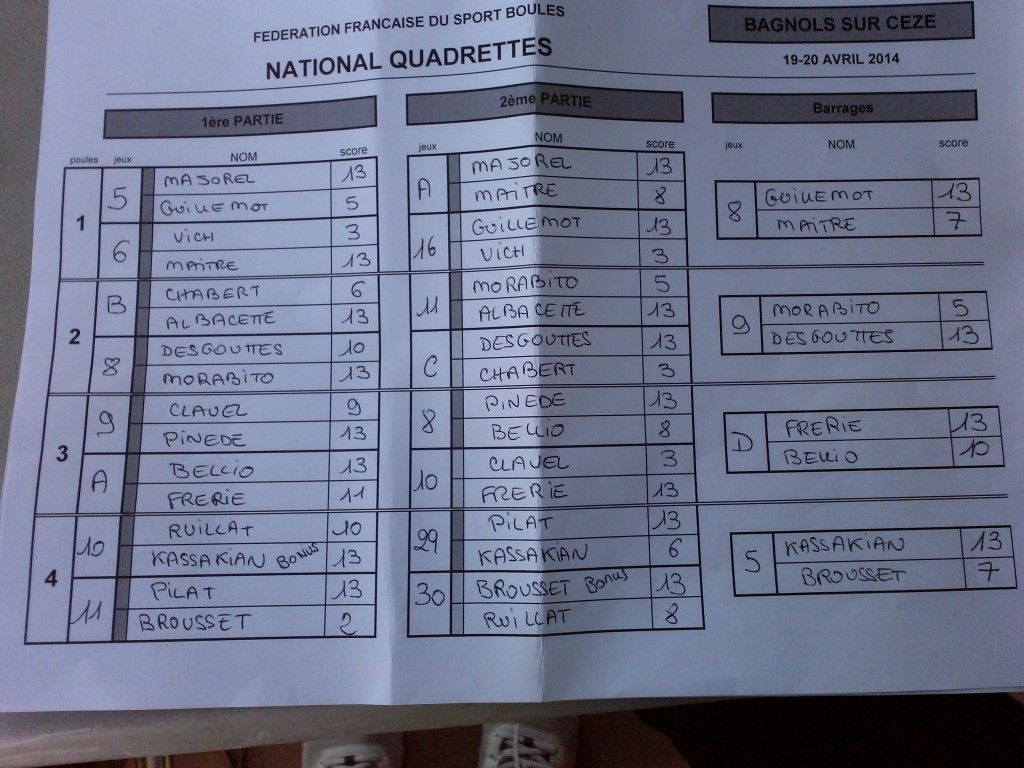 FEDERATION FRANCAISE DU SPORT BOULES
NATIONAL QUADRETTES
BAGNOLS SUR CEZE
19-20 AVRIL 2014
1ère PARTIE
poules jeux NOM score
1
5
MAJOREL 13
GUILLEMOT 5
6
VICH 3
MAITRE 13
2
B
CHABERT 6
ALBACETTE 13
8
DESGOUTTES 10
MORABITO 13
3
9
CLAVEL 9
PINEDE 13
A
BELLIO 13
FRERIE 11
4
10
RUILLAT 10
KASSAKIAN Bonus 13
11
PILAT 13
BROUSSET 2
2ème PARTIE
jeux NOM score
A
MAJOREL 13
MAITRE 8
16
GUILLEMOT 13
VICH 3
11
MORABITO 5
ALBACETTE 13
C
DESGOUTTES 13
CHABERT 3
8
PINEDE 13
BELLIO 8
10
CLAVEL 3
FRERIE 13
29
PILAT 13
KASSAKIAN 6
30
BROUSSET Bonus 13
RUILLAT 8
Barrages
jeux NOM score
8
GUILLEMOT 13
MAITRE 7
9
MORABITO 5
DESGOUTTES 13
D
FRERIE 13
BELLIO 10
5
KASSAKIAN 13
BROUSSET 7